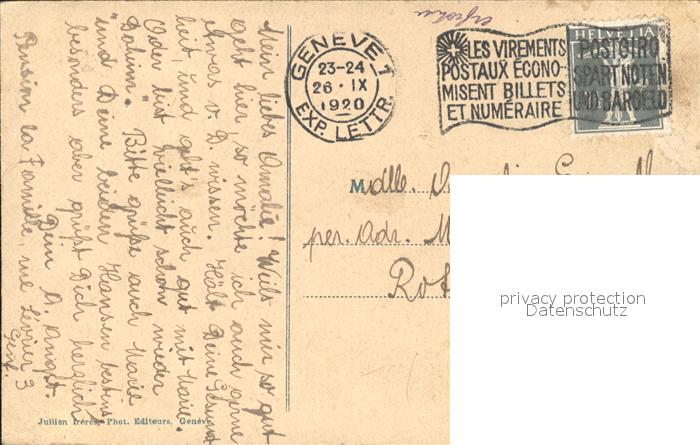 Mein liebes Amalie! Weils mir so gut
geht hier, so möchte ich auch gerne
etwas v. D. wissen. Hält Deine Gesund
heit, und geht's auch gut mit Marie.
Oder bist vielleicht schon wieder
Daheim. Bitte grüße auch Marie
und Deine beiden Hansen bestens
besonders aber grüßt Dich herzlich
Dein A. Angst.
Pension la Famille, rue Lévrier 3
Genf.
Jullien frères, Phot. Editeurs, Genève
GENÈVE 1
23-24
26·IX
1920
EXP. LETTR.
LES VIREMENTS
POSTAUX ÉCONO-
MISENT BILLETS
ET NUMÉRAIRE
HELVETIA
POSTGIRO
SPART NOTEN
UND BARGELD
Mdlle.
per. Adr. M
Rot
privacy protection
Datenschutz